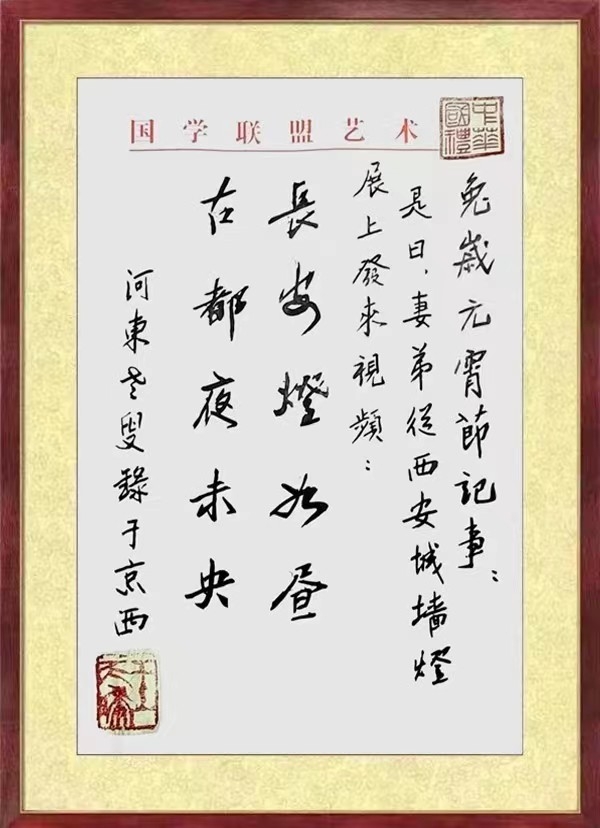 国学联盟艺术
中華
國禮
兔歲元宵節記事：
是日，妻弟從西安城墙燈
展上發來視頻：
長安燈如昼
古都夜未央
河東老叟錄于京西